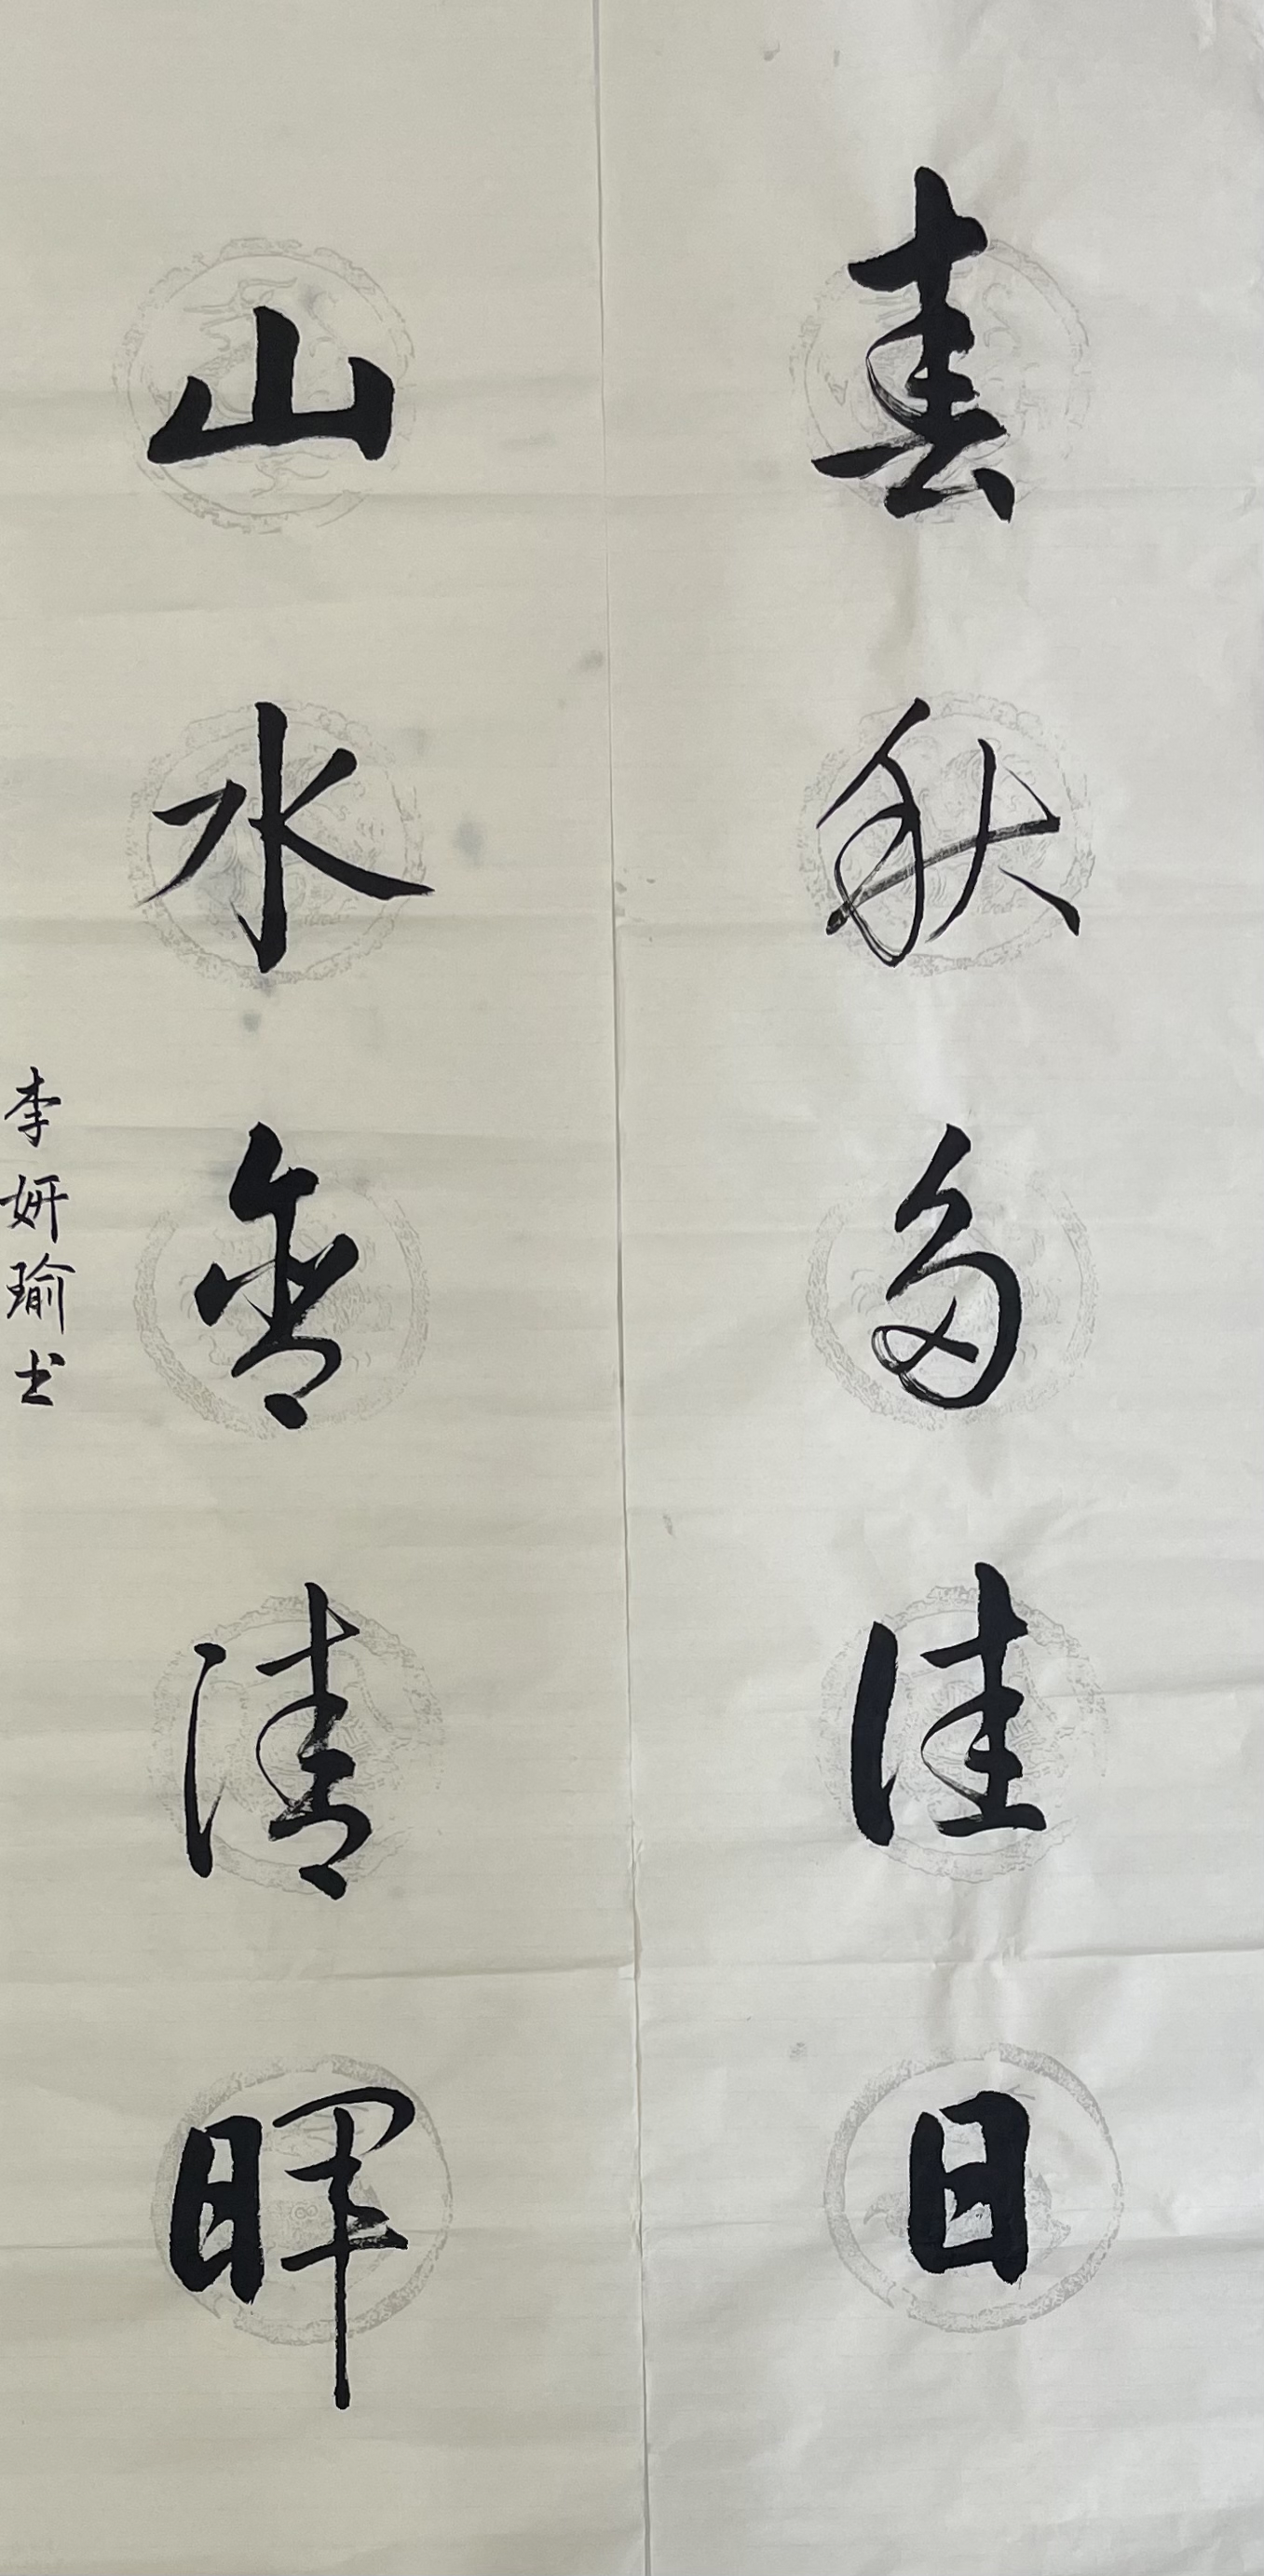 春秋多佳日
山水含清晖
李妍瑜书